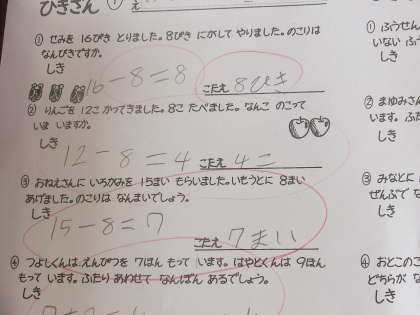 ひきざん ①
え
① せみを 16ぴき とりました。8ぴき にがして やりました。のこりは
なんびきですか。
しき
16-8=8
こたえ 8ひき
② りんごを 12こ かってきました。8こ たべました。なんこ のこって
いま いますか。
しき
12-8=4
こたえ 4こ
③ おねえさんに いろがみを 15まい もらいました。いもうとに 8まい
あげました。のこりは なんまいでしょう。
しき
15-8=7
こたえ 7まい
④ つよしくんは えんぴつを 7ほん もって います。はやとくんは 9ほん
もって います。ふたり あわせて なんぼん あるでしょう。
しき
① ふうせん
いない ふ
しき
② まゆみさ
います。ふた
しき
③ みなとに
ぜんぶで
しき
④ おとこのこ
どちらが
しき